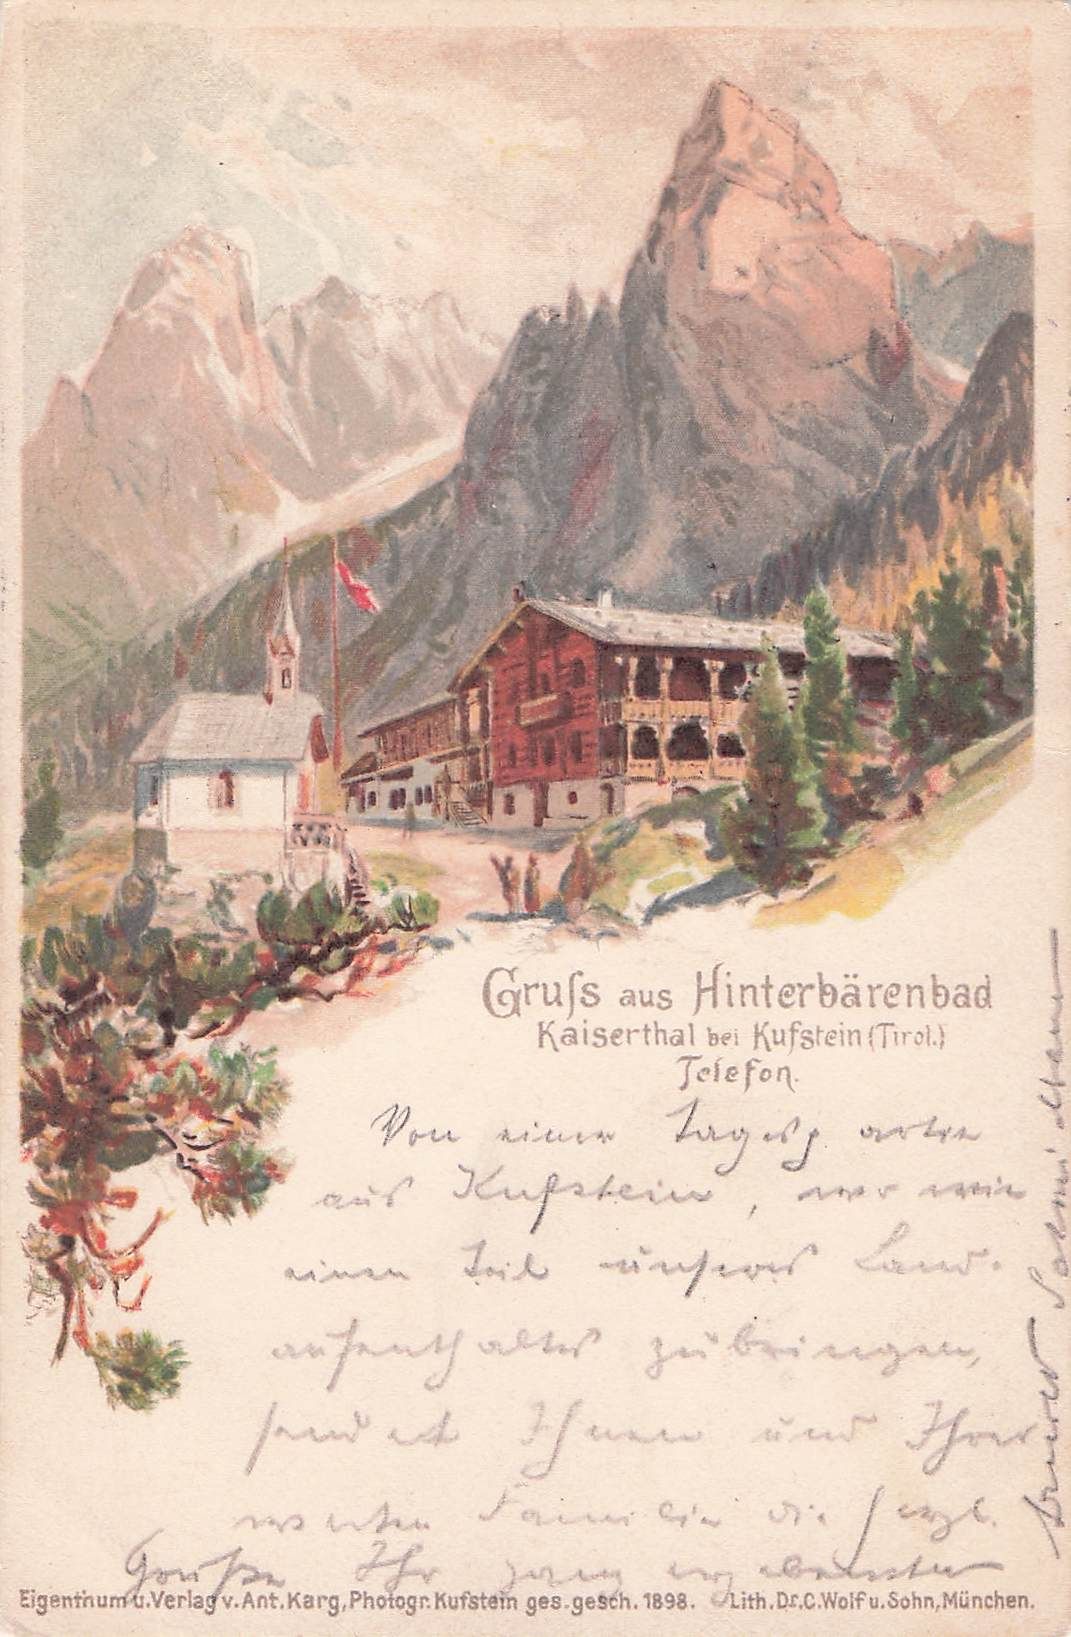 Gruſs aus Hinterbärenbad
Kaiserthal bei Kufstein (Tirol.)
Telefon.
Von einer Tagesp artie
aus Kufstein, wo wir
einen Teil unseres Land-
aufenthaltes zubringen,
sendet Ihnen und Ihrer
werten Familie die herzl.
Grüße Ihr ganz ergebenster
Eigenthum u. Verlag v. Ant. Karg, Photogr. Kufstein ges. gesch. 1898. Lith. Dr. C. Wolf u. Sohn, München.